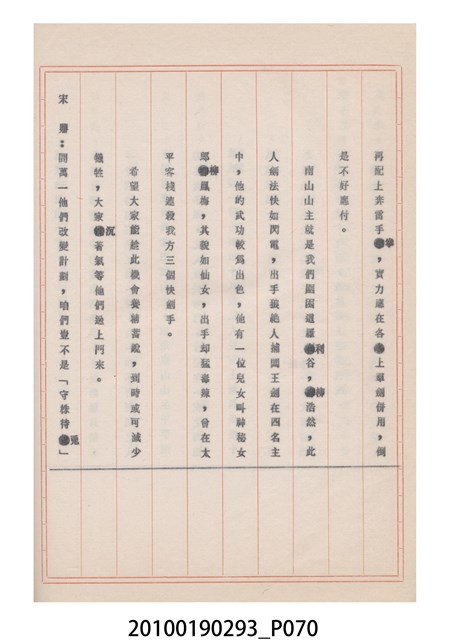 再配上奔雷手掌，實力應在各上單劍併用，倒
是不好應付。
南山山主就是我們剛困過羅利谷，柳浩然，此
人劍法快如閃電，出手狠絶人捕閻王劍在四名主
中，他的武功較爲出色，他有一位兒女叫神秘女
郎柳鳳梅，其貌如仙女，出手却猛毒辣，曾在太
平客棧連殺我方三個快劍手。
希望大家能於此機會養精蓄銳，到時或可減少
犧牲，大家沉著氣等他們送上門來。
宋　　：開萬一他們改變計劃，咱們豈不是「守株待兎」
20100190293_P070